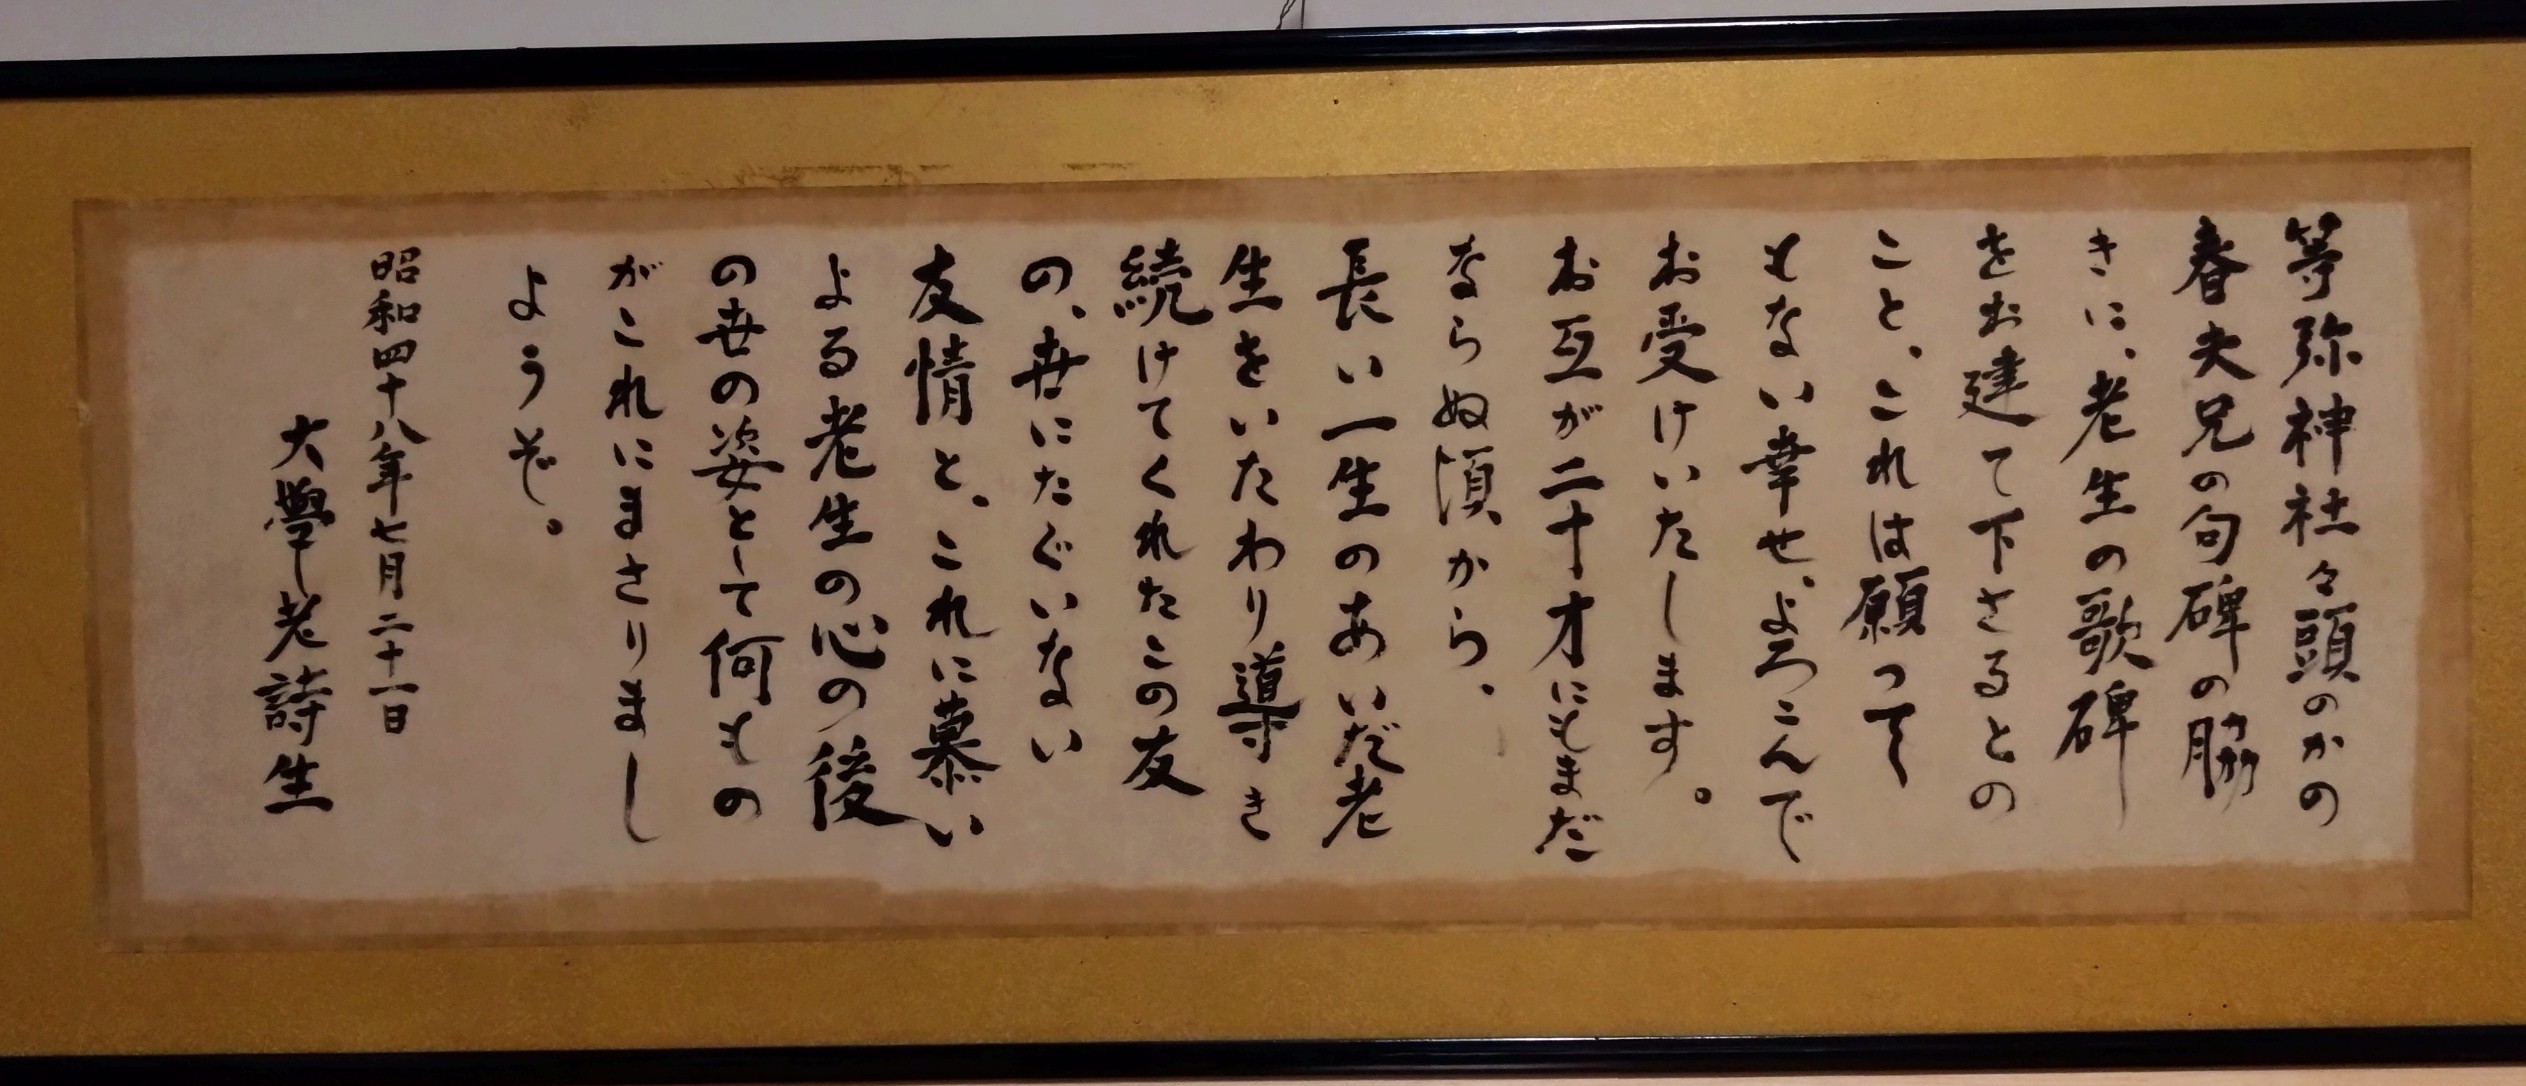 等弥神社々頭のかの
春夫兄の句碑の脇
きに、老生の歌碑
をお建て下さるとの
こと、これは願って
もない幸せ、よろこんで
お受けいたします。
お互が二十才にもまだ
ならぬ頃から、
長い一生のあいだ老
生をいたわり導き
続けてくれたこの友
の、世にたぐいない
友情と、これに慕い
よる老生の心の後
の世の姿として何もの
がこれにまさりまし
ようぞ。
昭和四十八年七月二十一日
大學老詩生